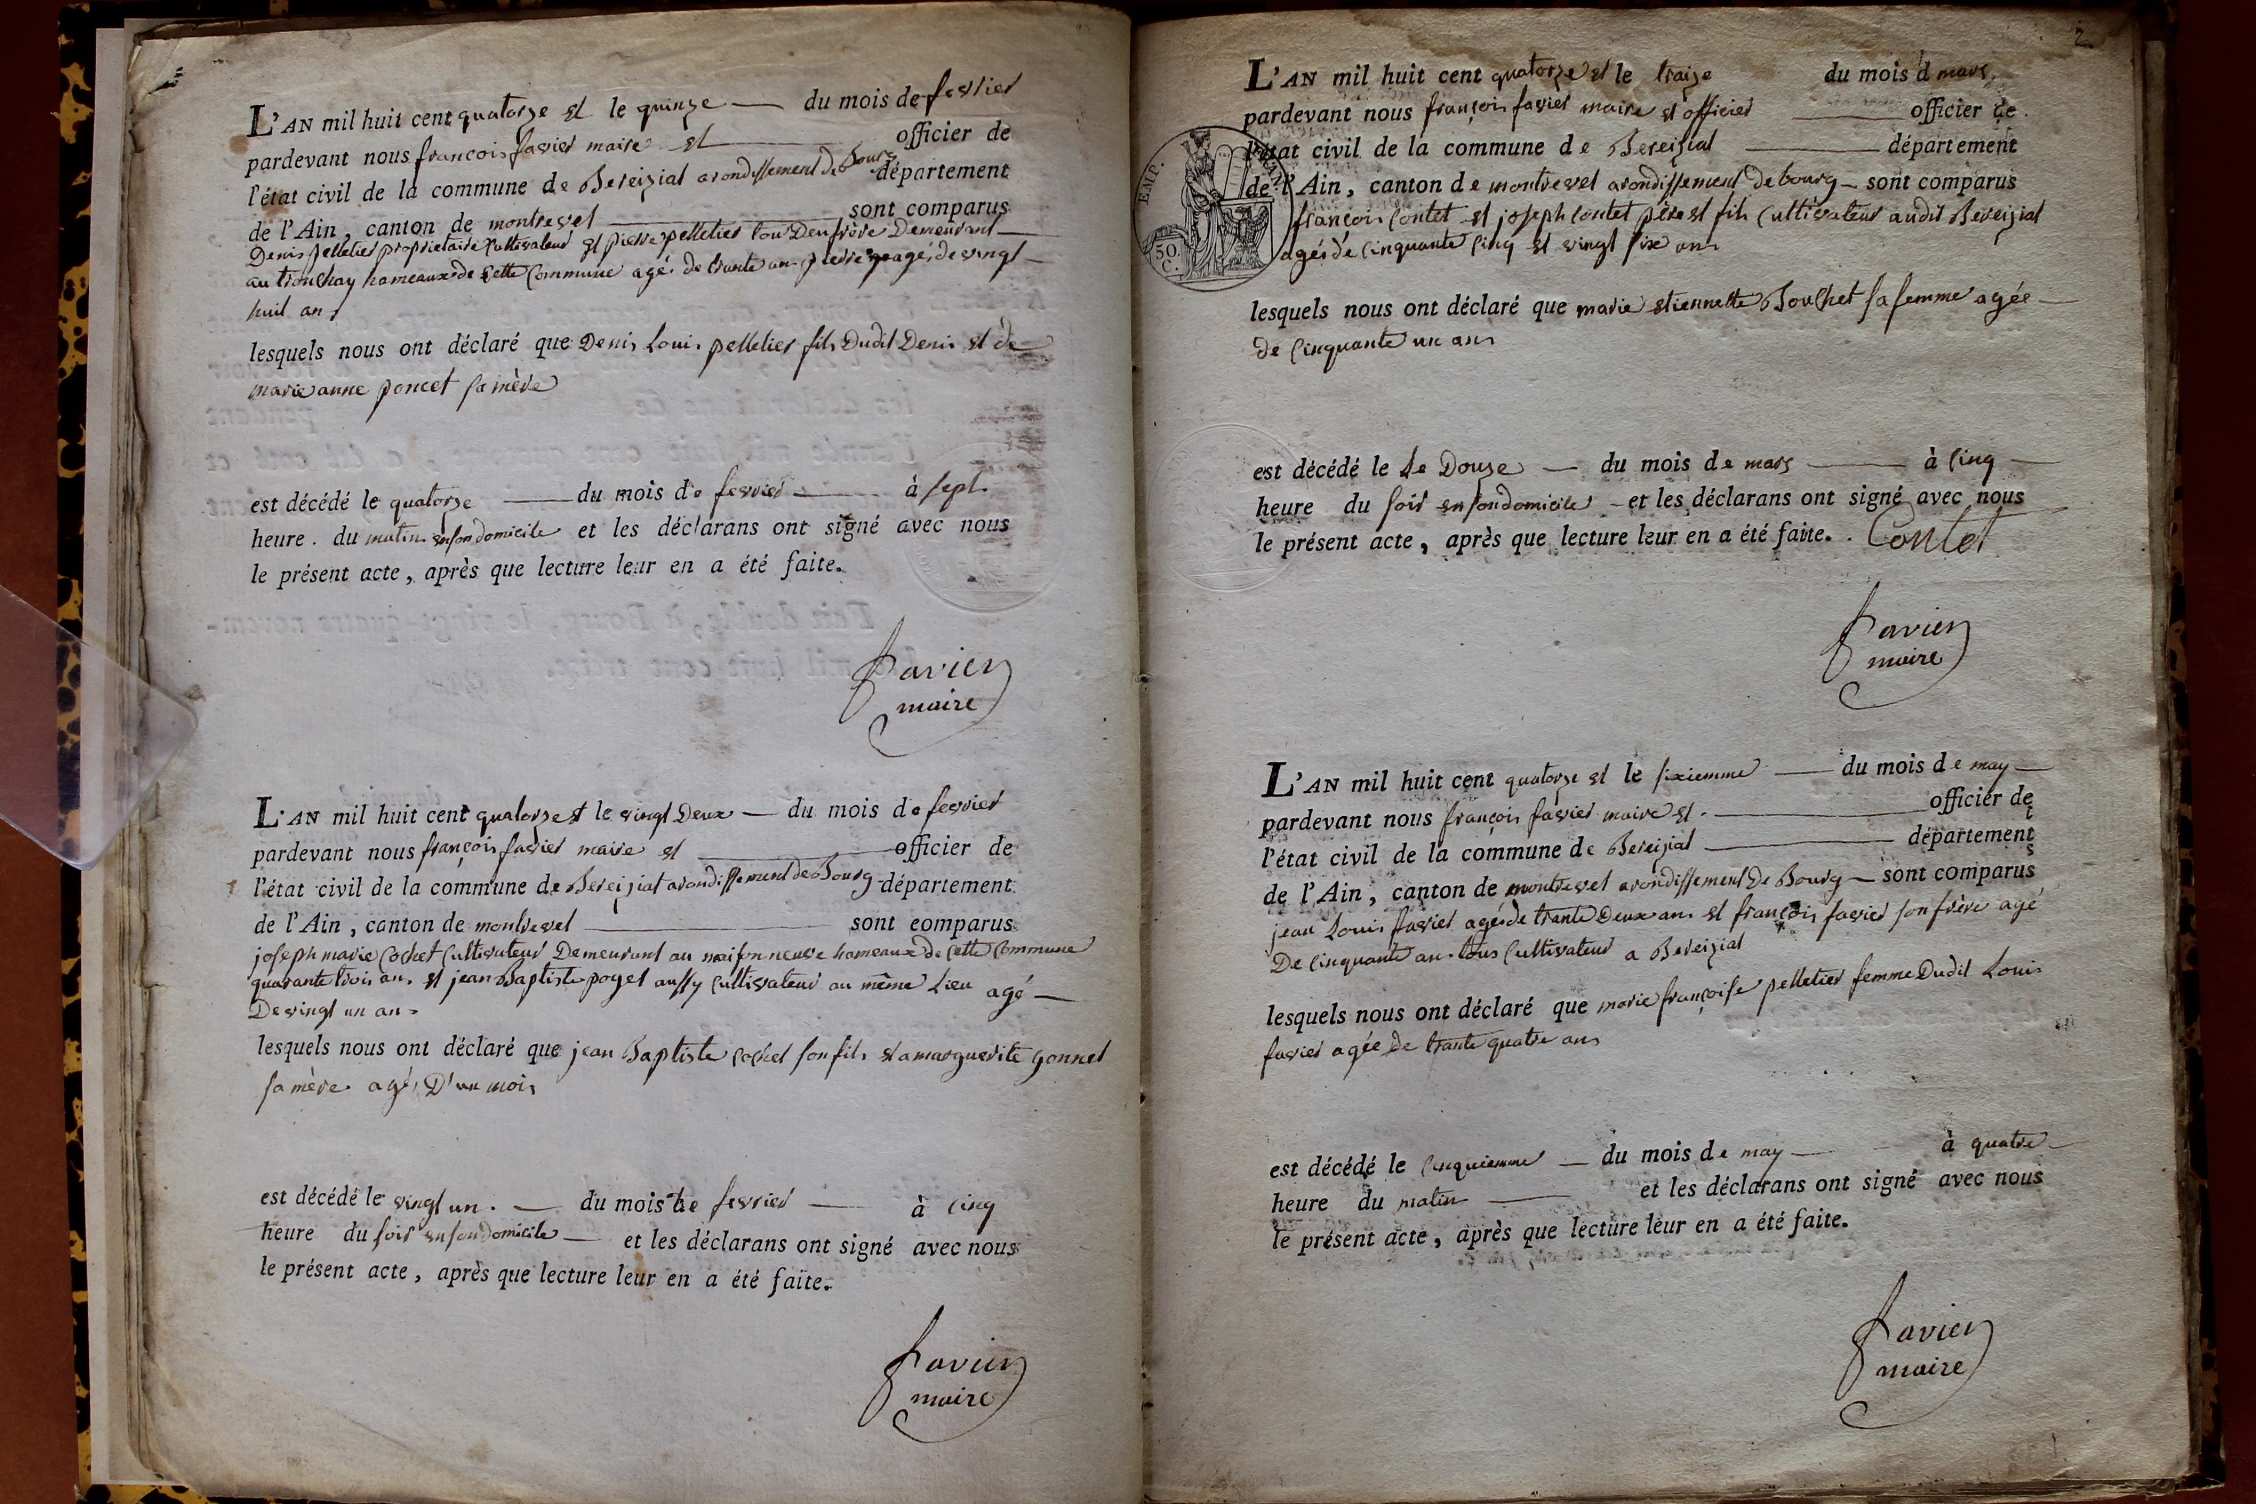 L'AN mil huit cent quatorze et le quinze du mois de fevrier
pardevant nous françois favier maire et officier de
l'état civil de la commune de Bereiziat arondissement de Bourg département
de l'Ain, canton de montrevel sont comparus
Denis pelletier proprietaire cultivateur et pierre pelletier tous Deux frère Demeurant
au tronchay hameaux de cette commune agés de trante ans pierre agé de vingt
huit ans
lesquels nous ont déclaré que Denis Louis pelletier fils Dudit Denis et de
marie anne poncet sa mère
est décédé le quatorze du mois de fevrier à sept
heure du matin en son domicile et les déclarans ont signé avec nous
le présent acte, après que lecture leur en a été faite.
favier
maire
L'AN mil huit cent quatorze et le vingt Deux du mois de fevrier
pardevant nous françois favier maire et officier de
l'état civil de la commune de Bereiziat arondissement de Bourg département
de l'Ain, canton de montrevel sont comparus
joseph marie cochet cultivateur Demeurant au maison neuve hameaux de cette commune
quarante trois ans et jean Baptiste poyet aussy cultivateur au même Lieu agé
De vingt un ans
lesquels nous ont déclaré que jean Baptiste cochet son fils et a marguerite gonnet
sa mère agés D'un mois
est décédé le vingt un du mois de fevrier à cinq
heure du soir en son domicile et les déclarans ont signé avec nous
le présent acte, après que lecture leur en a été faite.
favier
maire
2
L'AN mil huit cent quatorze et le traize du mois d mars
pardevant nous françois favier maire et officier officier de
l'état civil de la commune de Bereiziat département
de l'Ain, canton de montrevel arondissement de bourg sont comparus
françois contet et joseph contet père et fils cultivateur audit Bereiziat
agés de cinquante cinq et vingt six ans
EMP.
50
C.
lesquels nous ont déclaré que marie etiennette Bouchet sa femme agée
de cinquante un ans
est décédé le Le Douze du mois de mars à cinq
heure du soir en son domicile et les déclarans ont signé avec nous
le présent acte, après que lecture leur en a été faite. Contet
favier
maire
L'AN mil huit cent quatorze et le sixiemme du mois de may
pardevant nous françois favier maire et officier de
l'état civil de la commune de Bereiziat département
de l'Ain, canton de montrevel arondissement De Bourg sont comparus
jean Louis favier agés de trante Deux ans et françois favier son frère agé
De cinquante ans tous cultivateur a Bereiziat
lesquels nous ont déclaré que marie françoise pelletier femme Dudit Louis
favier agée De trante quatre ans
est décédé le cinquiemme du mois de may à quatre
heure du matin et les déclarans ont signé avec nous
le présent acte, après que lecture leur en a été faite.
favier
maire